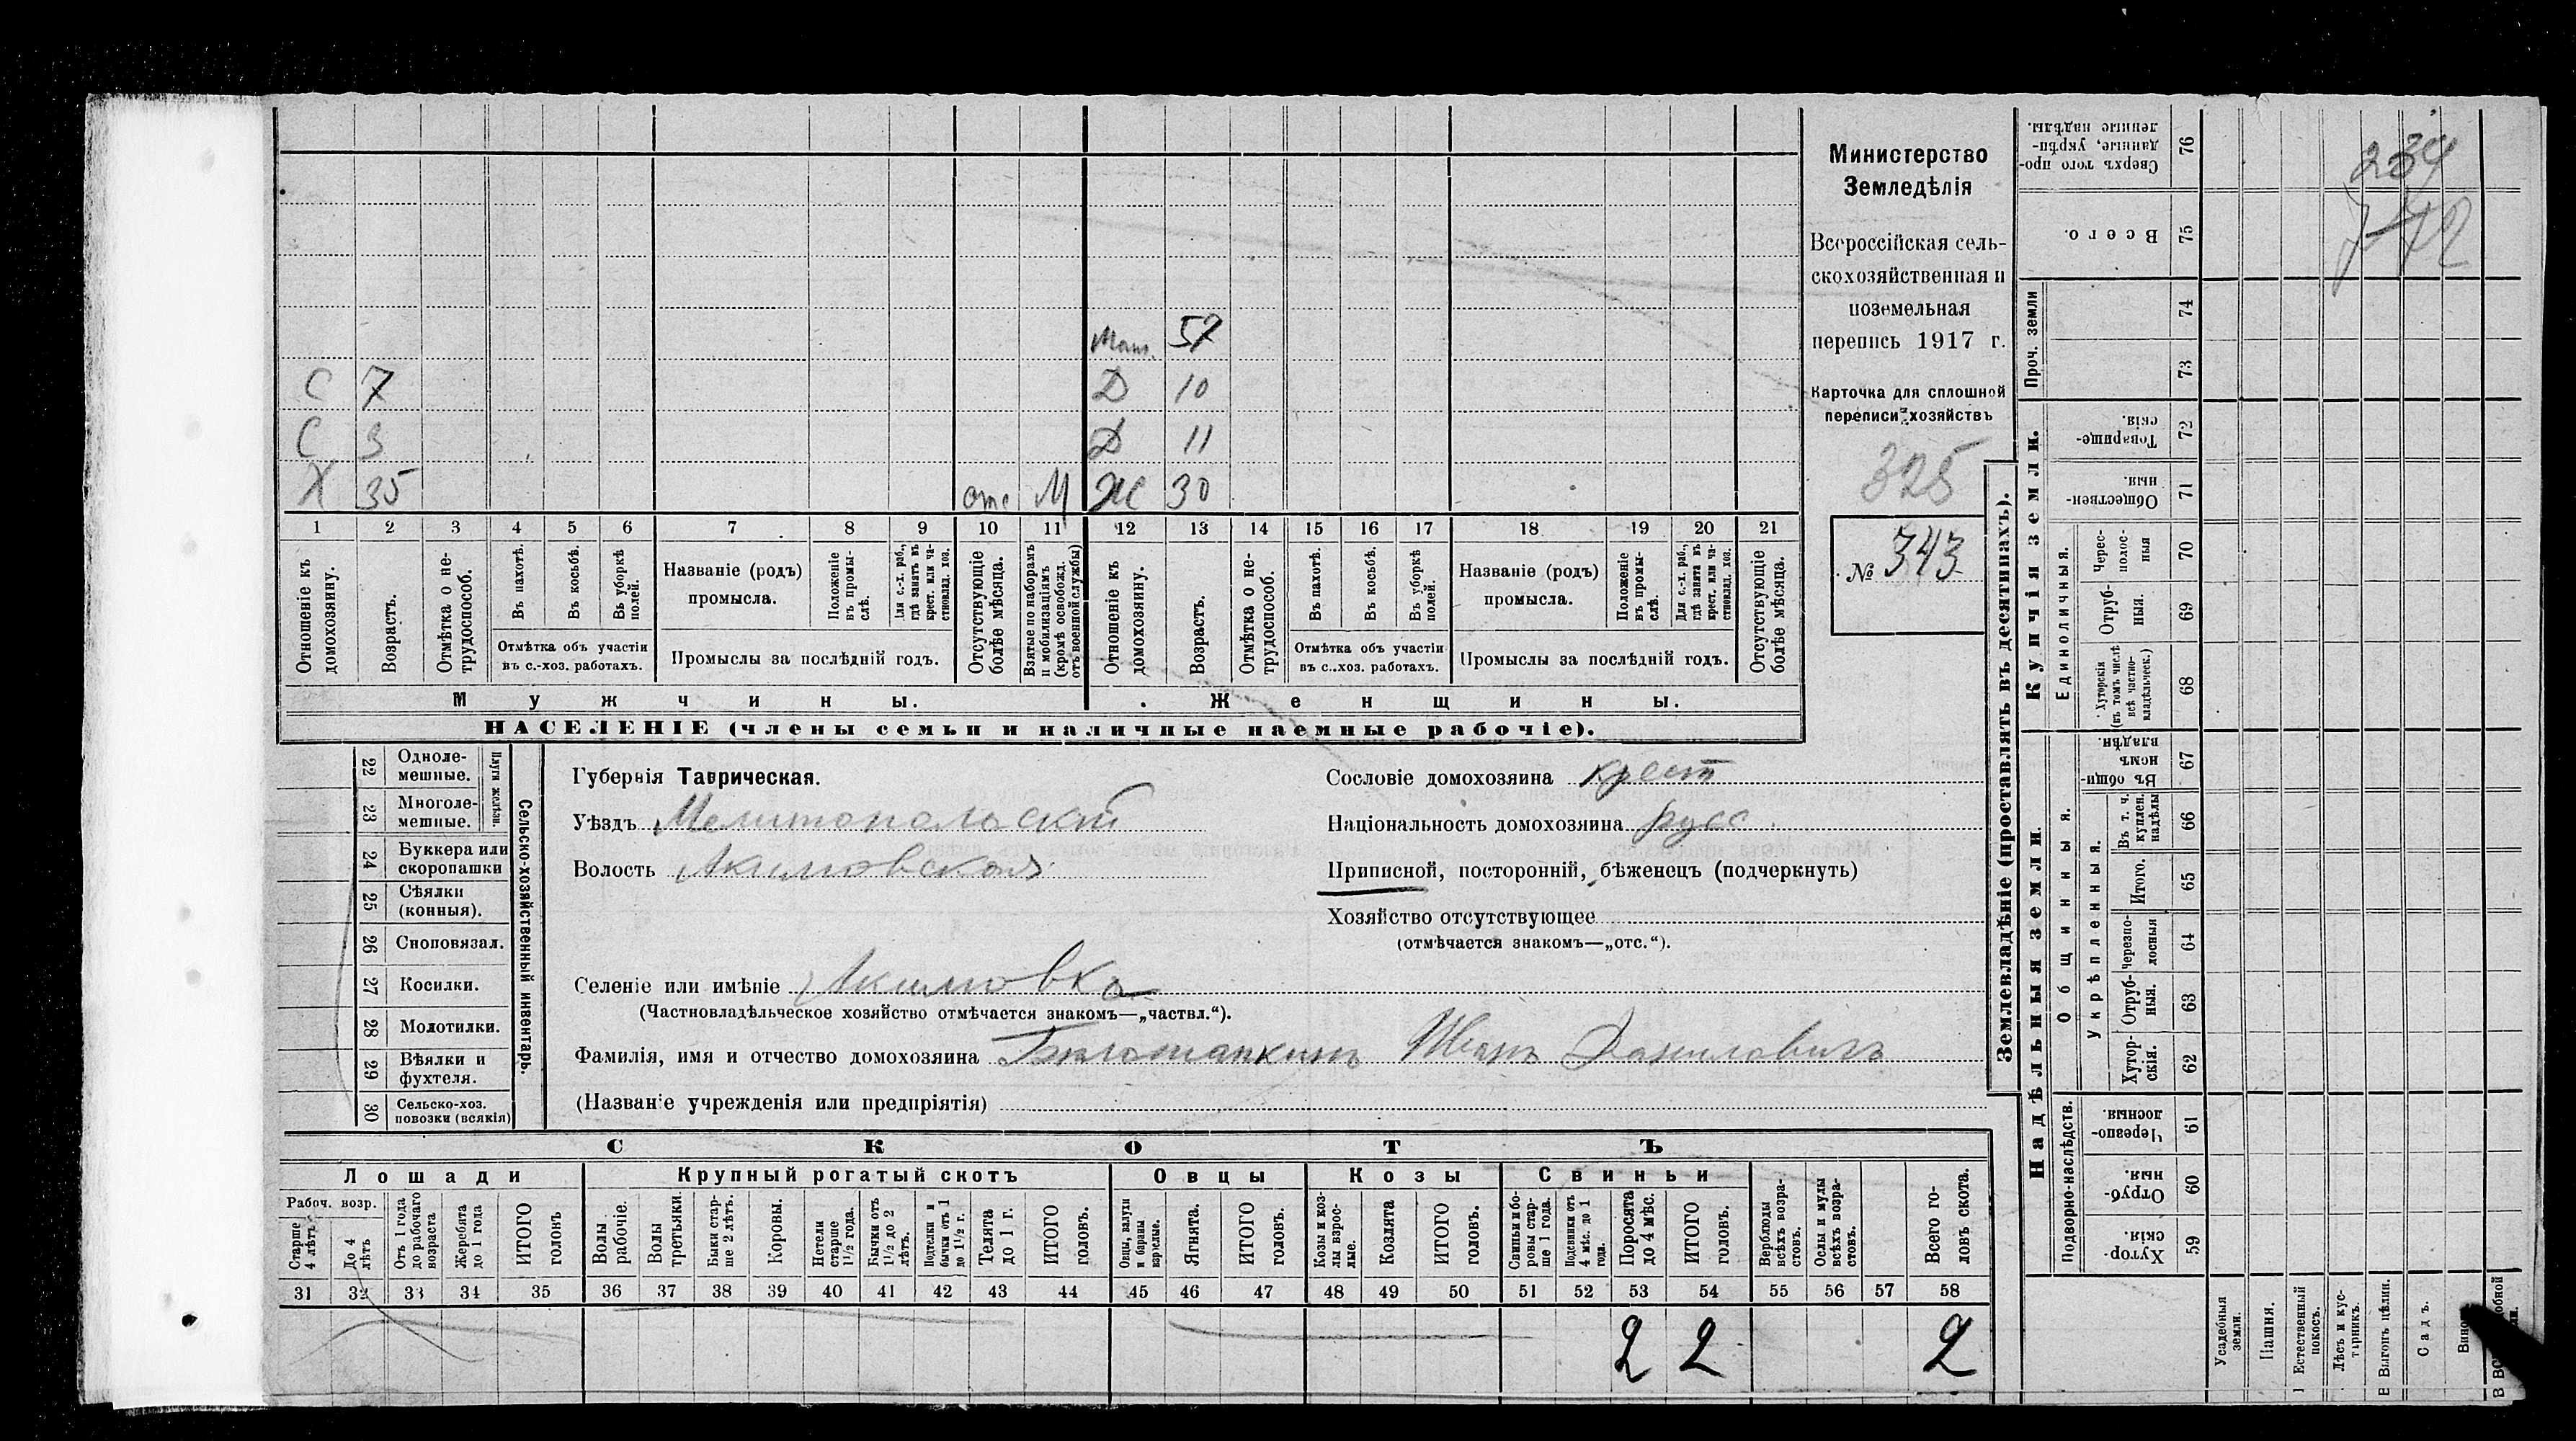 Министерство
Земледѣлія
Всероссійская сель-
скохозяйственная и
поземельная
перепись 1917 г.
Карточка для сплошной
переписи хозяйствъ
325
№ 343
234
Мат. 57
С 7 Д 10
С 3 Д 11
Х 35 отс М Ж 30
1 2 3 4 5 6 7 8 9 10 11 12 13 14 15 16 17 18 19 20 21
Отношеніе къ домохозяину.
Возрастъ.
Отмѣтка о не-трудоспособ.
Въ пахотѣ.
Въ косьбѣ.
Въ уборкѣ полей.
Отмѣтка объ участіи
въ с.-хоз. работахъ.
Названіе (родъ)
промысла.
Положеніе въ промы-слѣ.
Для с.-х. раб., гдѣ занятъ въ крест. или ча-стновлад. хоз.
Промыслы за послѣдній годъ.
Отсутствующіе болѣе мѣсяца.
Взятые по наборамъ и мобилизаціямъ (кромѣ освобожд. отъ военной службы)
Отношеніе къ домохозяину.
Возрастъ.
Отмѣтка о не-трудоспособ.
Въ пахотѣ.
Въ косьбѣ.
Въ уборкѣ полей.
Отмѣтка объ участіи
въ с.-хоз. работахъ.
Названіе (родъ)
промысла.
Положеніе въ промы-слѣ.
Для с.-х. раб., гдѣ занята въ крест. или ча-стновлад. хоз.
Промыслы за послѣдній годъ.
Отсутствующіе болѣе мѣсяца.
Мужчины.
Женщины.
НАСЕЛЕНІЕ (члены семьи и наличные наемные рабочіе).
22 Одноле-мешные.
23 Многоле-мешные.
Плуги желѣзн.
24 Буккера или скоропашки
25 Сѣялки (конныя).
26 Сноповязал.
27 Косилки.
28 Молотилки.
29 Вѣялки и фухтеля.
30 Сельско-хоз. повозки (всякія)
Сельско-хозяйственный инвентарь.
Губернія Таврическая.
Уѣздъ Мелитопольскій
Волость Акимовская
Селеніе или имѣніе Акимовка
(Частновладѣльческое хозяйство отмѣчается знакомъ—„частвл.“).
Фамилія, имя и отчество домохозяина Иванъ Даниловичъ
(Названіе учрежденія или предпріятія)
Сословіе домохозяина крест
Національность домохозяина русс.
Приписной, посторонній, бѣженецъ (подчеркнуть)
Хозяйство отсутствующее
(отмѣчается знакомъ—„отс.“).
СКОТЪ
Лошади
Крупный рогатый скотъ
Овцы
Козы
Свиньи
Рабоч. возр.
Старше 4 лѣтъ
До 4 лѣтъ
Отъ 1 года до рабочаго возраста
Жеребята до 1 года
ИТОГО головъ
Волы рабочіе.
Волы третьяки.
Быки стар-ше 2 лѣтъ.
Коровы.
Нетели старше 1½ года.
Бычки отъ 1½ до 2 лѣтъ.
Подтелки и бычки отъ 1 до 1½ г.
Телята до 1 г.
ИТОГО головъ.
Овцы, валухи и бараны взрослые.
Ягнята.
ИТОГО головъ.
Козы и коз-лы взрос-лые.
Козлята
ИТОГО головъ.
Свиньи и бо-ровы стар-ше 1 года.
Подсвинки отъ 4 мѣс. до 1 года.
Поросята до 4 мѣс.
ИТОГО головъ.
Верблюды всѣхъ возра-стовъ.
Ослы и мулы всѣхъ возра-стовъ.
Всего го-ловъ скота.
31 32 33 34 35 36 37 38 39 40 41 42 43 44 45 46 47 48 49 50 51 52 53 54 55 56 57 58
2 2 2
Землевладѣніе (проставлять въ десятинахъ).
Купчія земли.
Надѣльныя земли.
Сверхъ того про-данные, укрѣп-ленные надѣлы. 76
Всего. 75
Проч. земли
74
73
Товарище-скія 72
Обществен-ныя 71
Единоличныя.
Черес-полос-ныя 70
Отруб-ныя. 69
Хуторскія (въ томъ числѣ всѣ частно-владѣльческ.) 68
Въ общи-номъ владѣн. 67
Общинныя.
Укрѣпленныя.
Въ т. ч. куплен. надѣлы 66
Итого. 65
Черезпо-лосныя 64
Отруб-ныя. 63
Хутор-скія. 62
Подворно-наслѣдств.
Черезпо-лосныя. 61
Отруб-ныя. 60
Хутор-скія. 59
Усадебныя земли.
Пашня.
Естественный покосъ.
Лѣсъ и кус-тарникъ.
Выгонъ цѣлин.
Садъ.